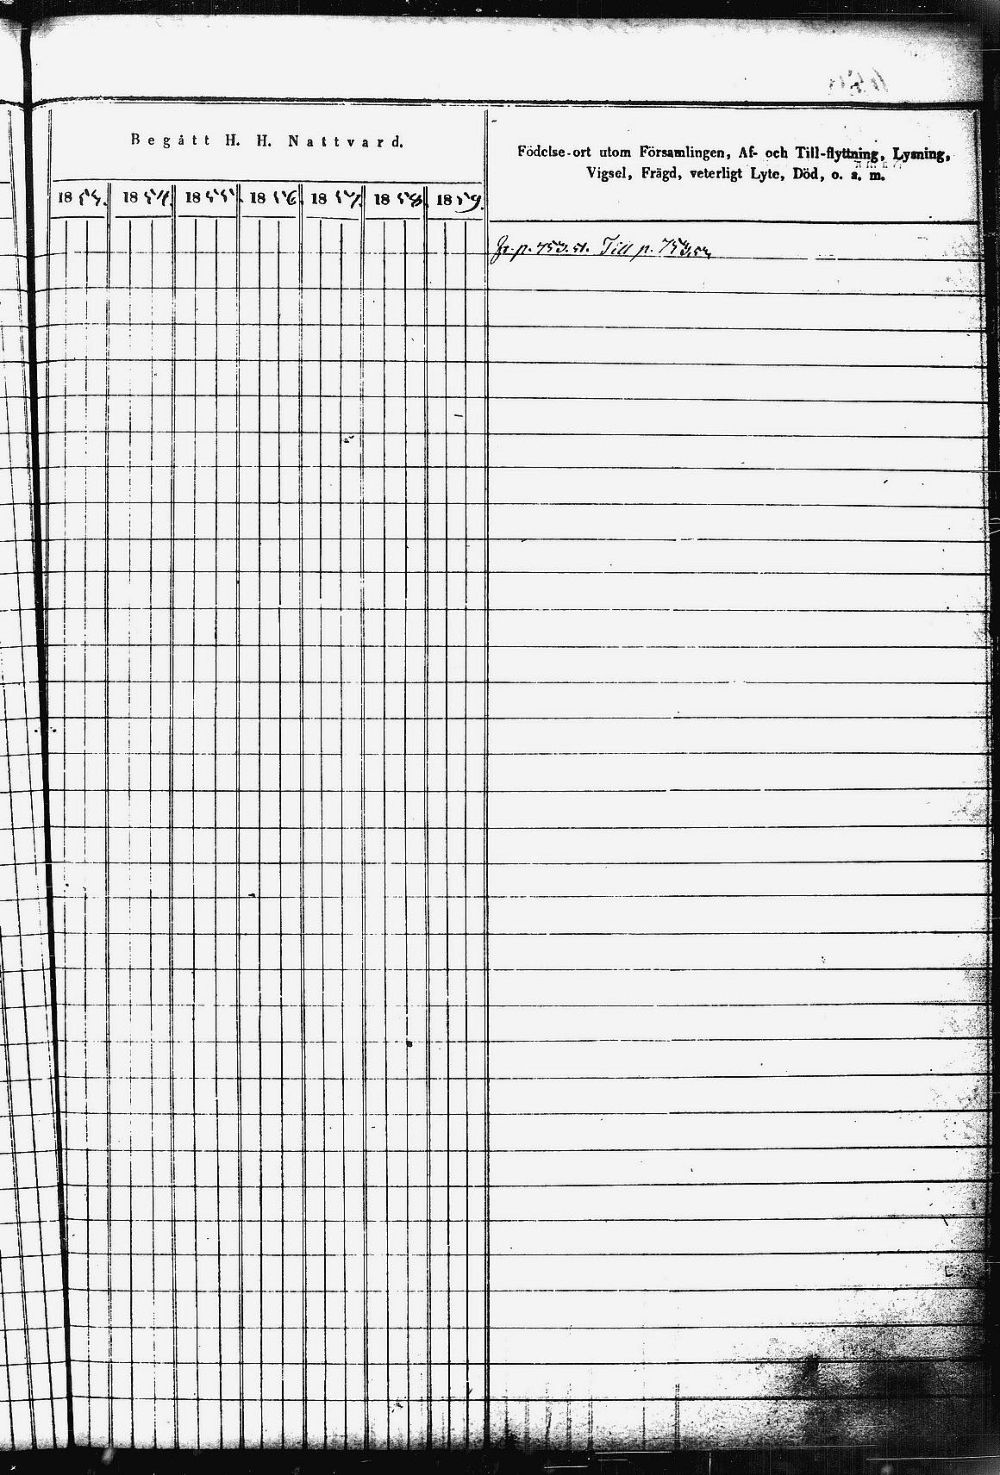 Begått H. H. Nattvard.
Födelse-ort utom Församlingen, Af- och Till-flyttning, Lysning,
Vigsel, Frägd, veterligt Lyte, Död, o. s. m.
1853. 1854. 1855. 1856. 1857. 1858. 1859.
Fr. p. 753. Till p. 753.